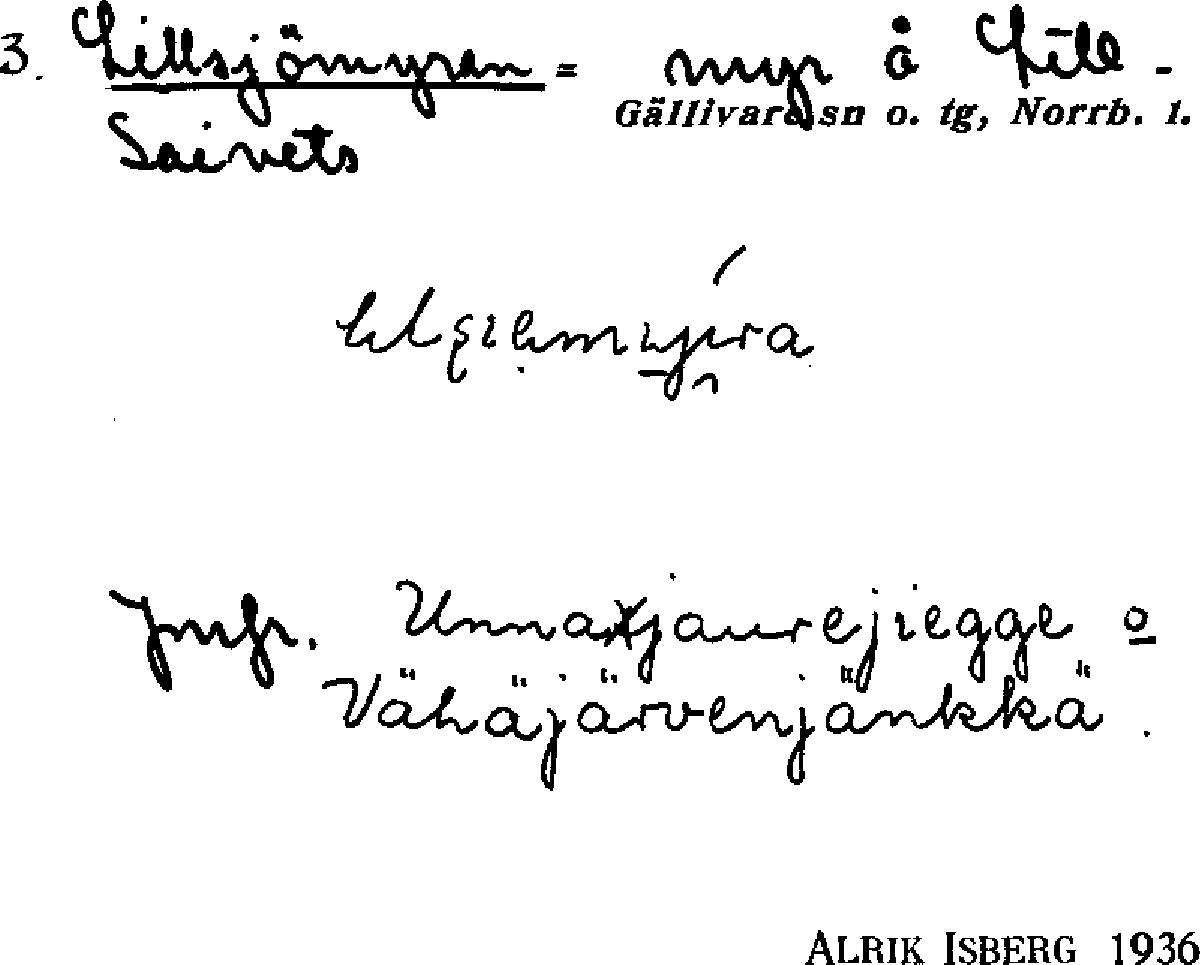 3. Lillsjömyren = myr å Lill-
Gällivare sn o. tg, Norrb. l.
Saivets
Jmfr. Unnajaurejiegge o
Vähäjärvenjänkkä.
ALRIK ISBERG 1936